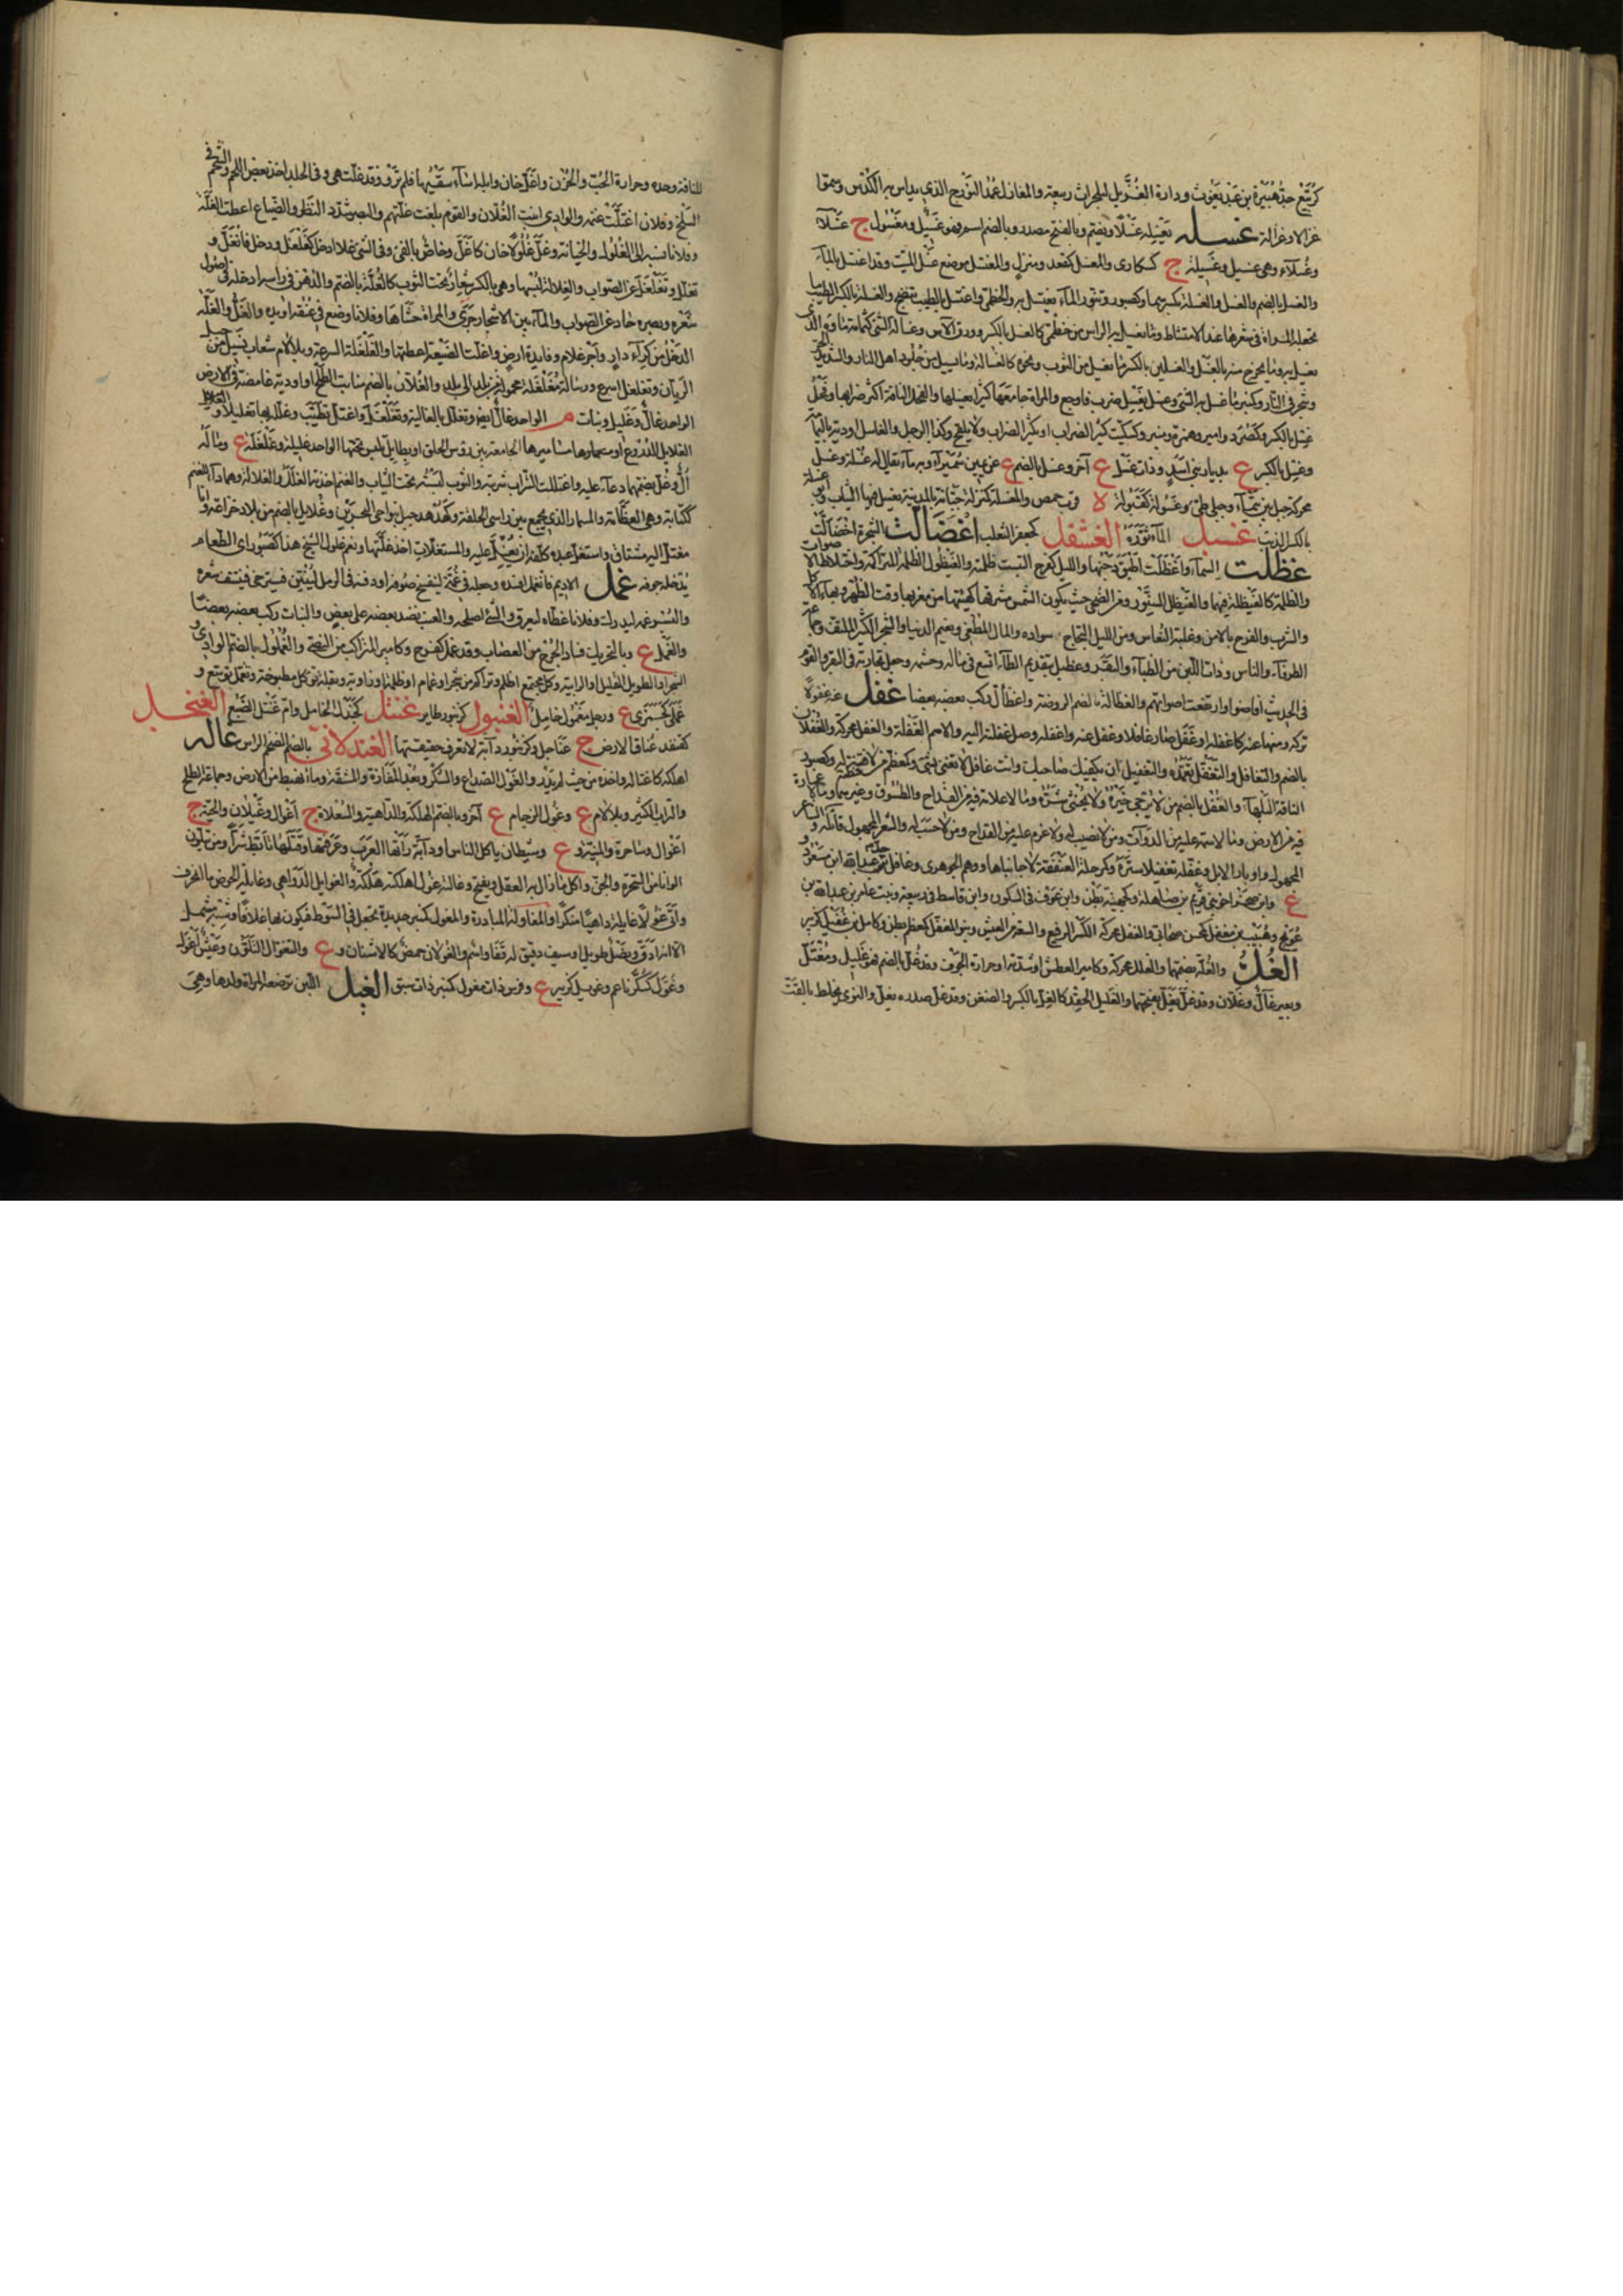 كزبيع جد هبيرة بن عبد يغوث ودارة الغزيل لبلحرث ربيعة والمغازل عمد النورج الذي يداس به الكدس وسموا
غزالا وغزالة غسله يغسله غسلا ويضم وبالفتح مصدر وبالضم اسم فهو غسيل ومغسول ج غسلى
وغسلاء وهي غسيل وغسيلة ج كسكارى والمغسل كمقعد ومنزل والمغتسل موضع غسل الميت وقد اغتسل بالماء
والغسل بالضم والغسل والغسلة بكسرهما وكصبور وتنور الماء يغتسل به والخطمي واغتسل بالطيب تضمخ والغسلة بالكسر الطيب
تجعله المراة في شعرها عند الامتشاط وما يغسل به الراس من خطمي كالغسل بالكسر وورق الآس وغسالة الشيء كثمامة ماؤه الذي
يغسل به وما يخرج منه بالغسل والغسلين بالكسر ما يغسل من الثوب ونحوه كالغسالة وما يسيل من جلود اهل النار والشديد الحر
وشجر في النار وكمنبر ما غسل به الشيء وغسل يغسل ضرب فاوجع والمراة جامعها كثيرا يغسلها والفحل الناقة اكثر ضرابها وفحل
غسل بالكسر وكصرد وامير وهمزة ومنبر وسكيت كثير الضراب او يكثر الضراب ولا يلقح وكذا الرجل والغاسل اودية باليمامة
وغسل بالكسر ع بديار بني اسد وذات غسل ع آخر وغسل بالضم ع عن يمين سميراء وبه ماء يقال له غسلة وغسل
محركة جبل بين تيماء وجبلي طيئ وغسولة كقبولة ة قرب حمص والمغسلة كمنزلة جبانة بالمدينة يغسل فيها الثياب
بالكسر الذيب غسبل الماء ثوره الغشفل كجعفر الثعلب اغضالت الشجرة اخضالت
غظلت السماء واغظلت اطبق دجنها والليل كفرح التبست ظلمته والغيظول الظلمة المتراكمة واختلاط الاصوات
والظلمة كالغيظلة فيهما والغيظل السنور ومن الضحى حيث يكون الشمس من مشرقها كهيئتها من مغربها وقت الظهر وبهاء
والشرب والفرح بالامن وغلبة النعاس ومن الليل التجاج سواده والمال المطغي ونعيم الدنيا والشجر الكثير الملتف وجماعة
الطرفاء والناس وذات اللبن من الظباء والبقر وعظيل بتقديم الطاء اتسع في ماله وحشمه وجعل تجارته في البقر والقوم
في الحديث افاضوا وارتفعت اصواتهم والغظالة بالضم الروضة واغظأل ركب بعضه بعضا غفل عنه غفولا
تركه وسها عنه كاغفله او غفل صار غافلا وغفل عنه واغفله وصل غفلته اليه والاسم الغفلة والغفل محركة والغفلان
بالضم والتغافل والتغفل تعمده والتغفيل ان يكفيك صاحبك وانت غافل لا تعنى بشيء وكمعظم من لا فطنة له وكصبور
الناقة البلهاء والغفل بالضم من لا يرجى خيره ولا يخشى شره وما لا علامة فيه من القداح والطرق وغيرهما وما لا عمارة
فيه من الارض وما لا سمة عليه من الدواب ومن لا نصيب له ولا غرم عليه من القداح ومن لا حسب له والشعر المجهول قائله والشاعر
المجهول واوبار الابل وغفله تغفيلا ستره وكمرحلة العنفقة لا جانباها ووهم الجوهري وغافل جد عبد الله ابن مسعود
ع وابن صخر اخو بني قريم بن صاهلة وكجهينة بطن وابن عوف في السكون وابن قاسط في ربيعة وبنت عامر بن عبد الله بن
عويج وهبيب بن مغفل كمحسن صحابي والغفل محركة الكثير الرفيع والسعة من العيش وبنو المغفل كمعظم بطن وكامل بن غفيل كزبير
الغل والغلة بضمهما والغلل محركة وكامير العطش او شدته او حرارة الجوف وقد غل بالضم فهو غليل ومغتل
وبعير غال وغلان وقد غل يغل بفتحهما والغليل الحقد كالغل بالكسر والضغن وقد غل صدره يغل والنوى يخلط بالقت
للناقة وحده وحرارة الحب والحزن واغل خان وابله اساء سقيها فلم ترو وقد غلت هي وفي الجلد اخذ بعض اللحم والشحم في
السلخ وفلان اغتلت غنمه والوادي انبت الغلان والقوم بلغت غلتهم والبصر شدد النظر والضياع اعطت الغلة
وفلانا نسبه الى الغلول والخيانة وغل غلولا خان كاغل وخاص بالفيء وفي الشيء غلا ادخل كغلغل ودخل فانغل و
تغلل وتغلغل عن الصواب والغلالة لبسها وهي بالكسر شعار تحت الثوب كالغلة بالضم والدهن في راسه ادخله في اصول
شعره وبصره حاد عن الصواب والماء بين الاشجار جرى والمراة حشاها وفلانا وضع في عنقه او يده والغل والغلة
الدخل من كراء دار واجر غلام وفايدة ارض واغلت الضيعة اعطتها والغلغلة السرعة وبلالام شعاب تسيل من جبل
الريان وتغلغل اسرع ورسالة مغلغلة محمولة من بلد الى بلد والغلان بالضم منابت الطلح او اودية غامضة في الارض
الواحد غال وغليل ونبات م الواحد غال ايضا وتغلل بالغالية وتغلغل واغتل تطيب وغلله بها تغليلا والغلايل
الغلايل الدروع او مسمارها مساميرها الجامعة بين رؤس الحلق او بطاين تلبس تحتها الواحد غليلة وغلغلة ع وماله
ال وغل بضمهما دعاء عليه واغتللت الشراب شربته والثوب لبسته تحت الثياب والغنم اخذتها الغلل والغلالة وهما داء للغنم
ككتابة وهي العظامة والمسمار الذي يجمع بين راسي الحلقة وكهدهد جبل بنواحي البحرين وغلايل بالضم من بلاد خزاعة وانا
مغتل اليه مشتاق واستغل عبده كلفه ان يغل عليه والمستغلات اخذ غلتها ونعم غلول الشيخ هذا كصبور اي الطعام
يدخله جوفه غمل الاديم فانغمل افسده وجعله في غمة لينفسخ صوفه او دفنه في الرمل لينتن فيسترخي فينتف شعره
والبسر غمه ليدرك وفلانا غطاه ليعرق والشيء اصلحه والعنب نضد بعضه على بعض والنبات ركب بعضه بعضا
والغمل ع وبالتحريك فساد الجرح من العصاب وقد غمل كفرح وكامير المتراكب من النصي والغملول بالضم الوادي
الشجر او الطويل القليل والرابية وكل مجتمع اظلم وتراكم من شجر او غمام او ظلمة او زاوية وبقلة تؤكل مطبوخة وتغمل توسع و
غملى كجمزى ع ورجل مغمول خامل الغنبول كزنبور طاير غنتل كجندل الخامل وام غنتل الضبع الغنجل
كقنفذ عناق الارض ج غناجل وكزنبور دابة لا تعرف حقيقتها الغندلاني بالضم الضخم الراس غاله
اهلكه كاغتاله واخذه من حيث لم يدر والغول الصداع والسكر وبعد المفازة والمشقة وما انهبط من الارض وجماعة الطلح
والتراب الكثير وبلالام ع وغول الرجام ع آخر وبالضم الهلكة والداهية والسعلاة ج اغوال وغيلان والحية ج
اغوال وساحرة والمنية و ع وشيطان ياكل الناس او دابة راتها العرب وعرفتها وقتلها تابط شرا ومن يتلون
الوانا من السحرة والجن او كل ما زال به العقل ويفتح وغالته غول اهلكته هلكة والغوايل الدواهي وغايلة الحوض ما انخرق
واتى غولا غايلة داهيا منكرا والمغاولة المبادرة والمغول كمنبر حديدة تجعل في السوط فيكون لها غلافا وشبه مشمل
الا انه ادق ونصل طويل او سيف دقيق له قفا واسم والغولان حمض كالاشنان و ع والتغول التلون وعيش اغول
وغول كسكر ناعم وغويل كزبير ع وفرس ذات مغول كمنبر ذات سبق الغيل اللبن ترضعه المراة ولدها وهي